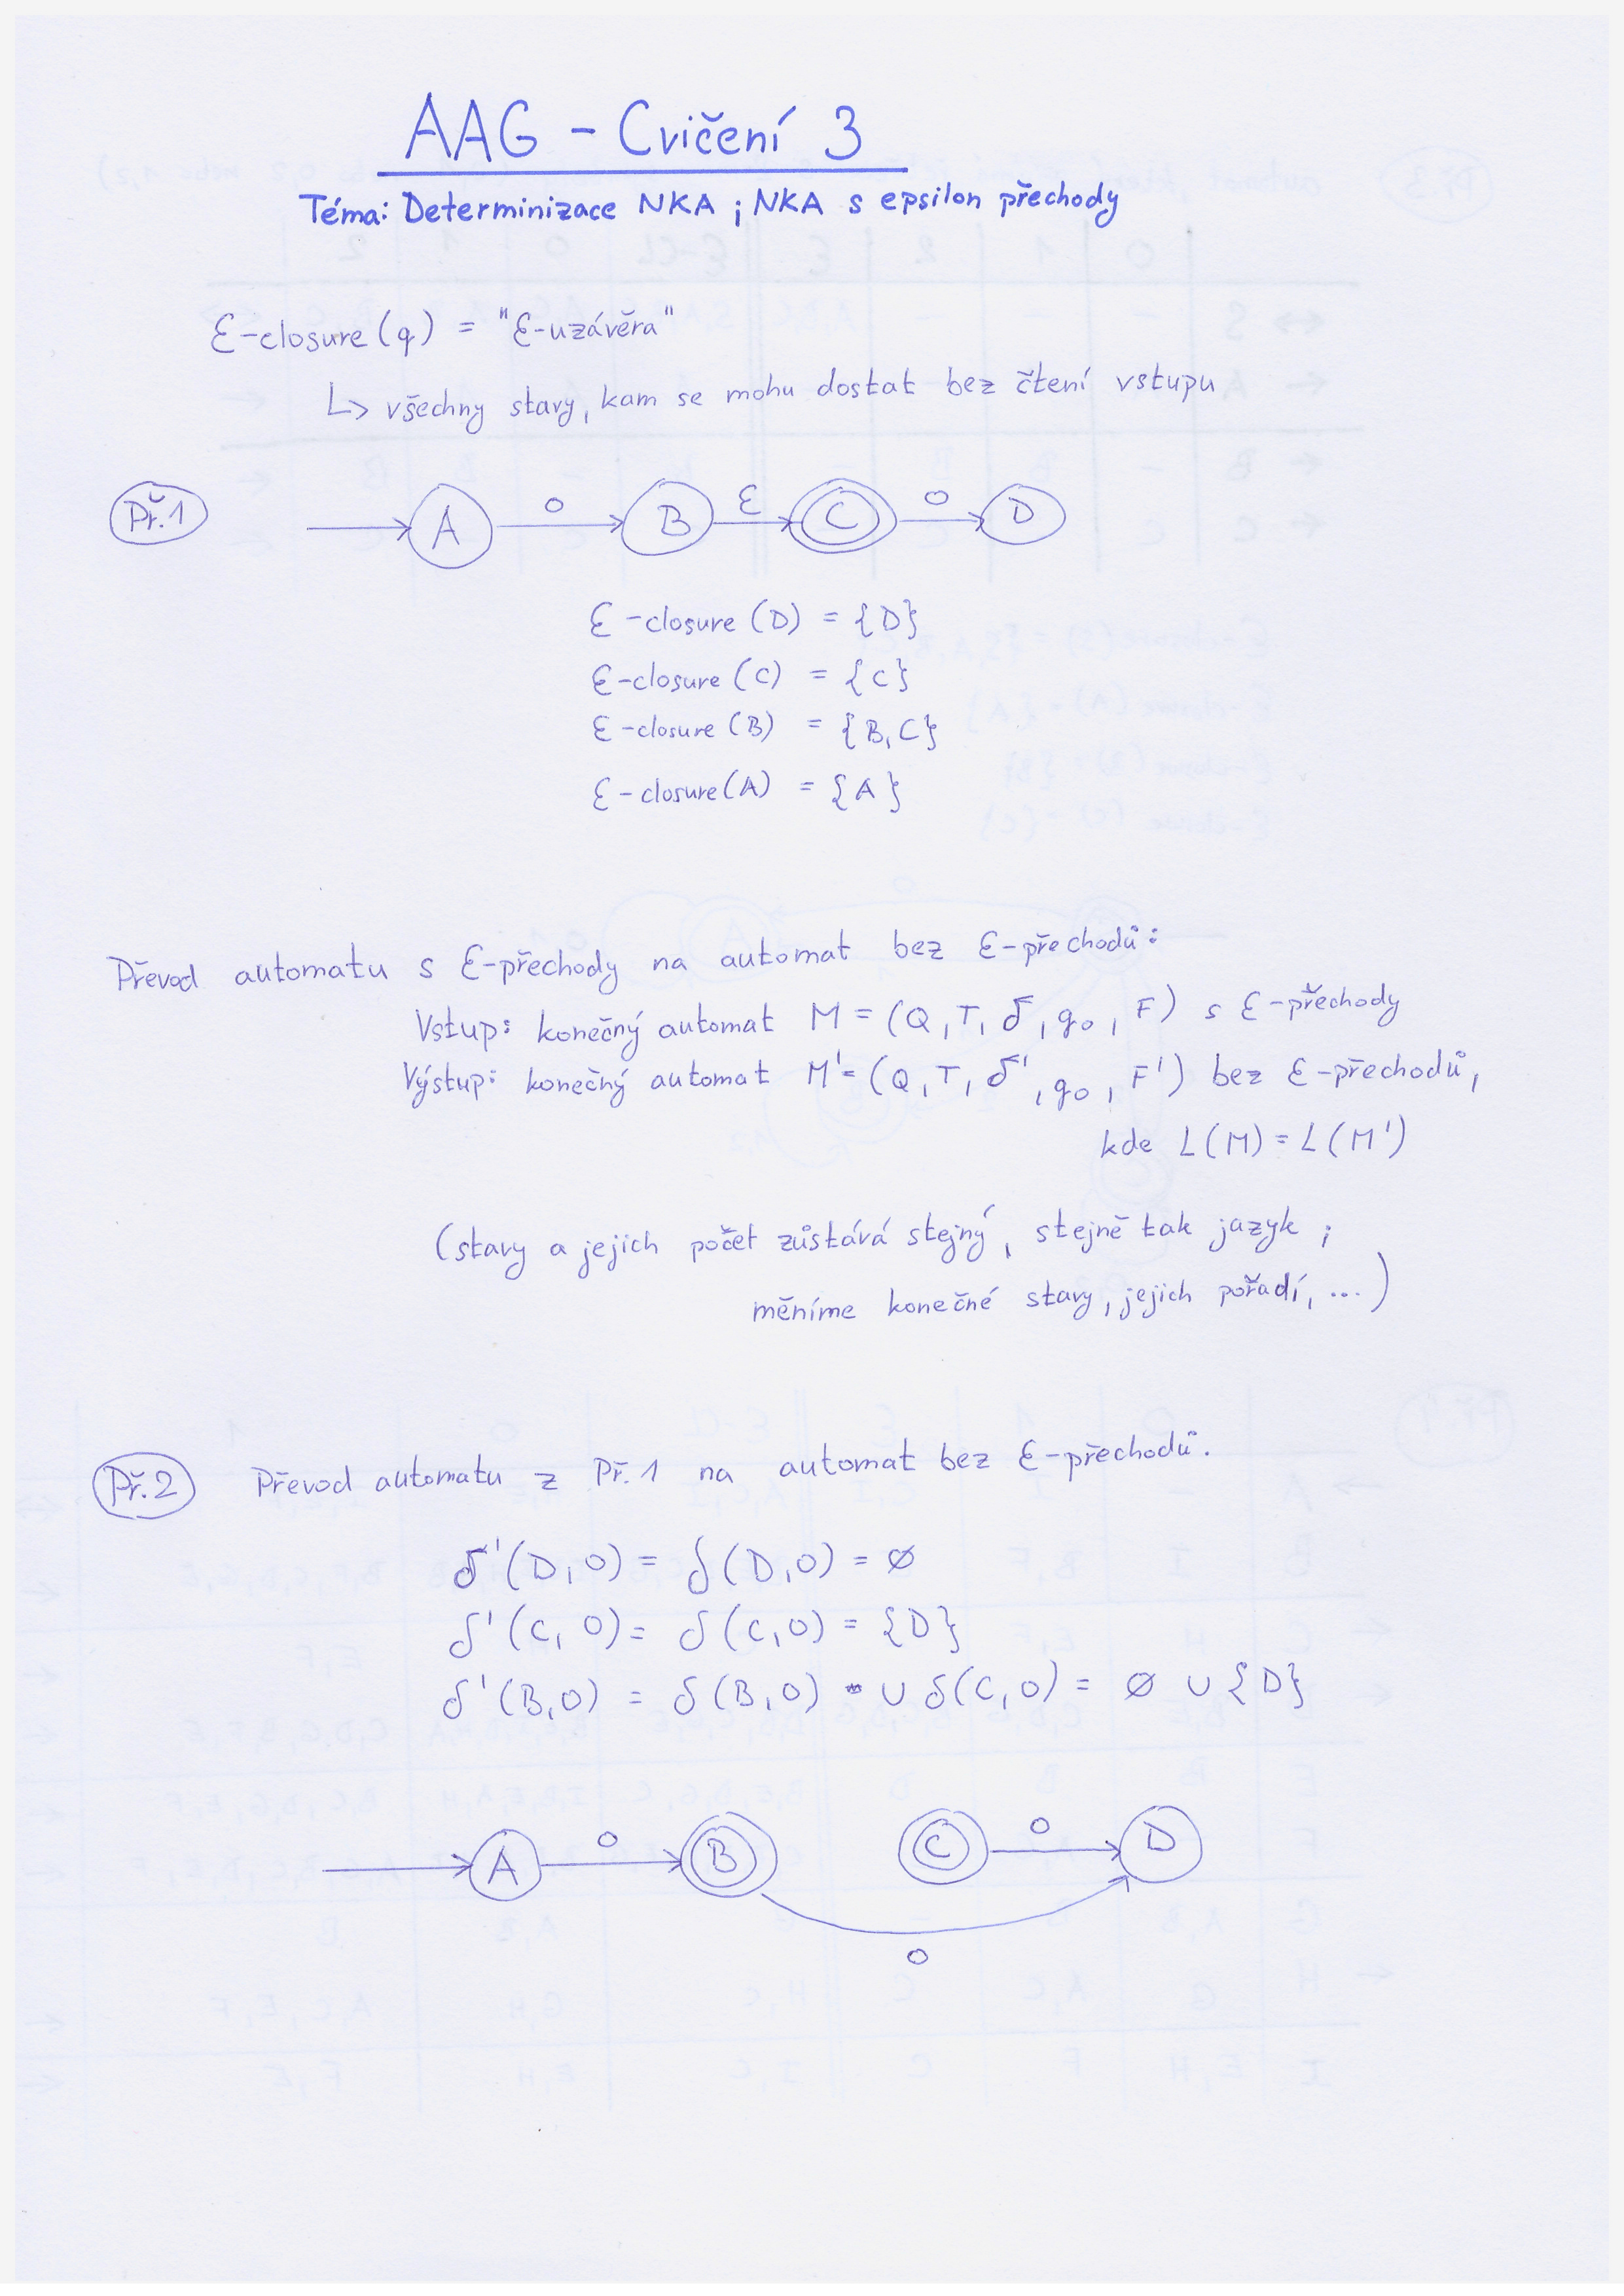 AAG - Cvičení 3
Téma: Determinizace NKA; NKA s epsilon přechody
ε-closure(q) = "ε-uzávěra"
↳ všechny stavy, kam se mohu dostat bez čtení vstupu
Př.1
A 0 B ε C 0 D
ε-closure(D) = {D}
ε-closure(C) = {C}
ε-closure(B) = {B,C}
ε-closure(A) = {A}
Převod automatu s ε-přechody na automat bez ε-přechodů:
Vstup: konečný automat M = (Q, T, δ, q₀, F) s ε-přechody
Výstup: konečný automat M' = (Q, T, δ', q₀, F') bez ε-přechodů,
kde L(M) = L(M')
(stavy a jejich počet zůstává stejný, stejně tak jazyk;
měníme konečné stavy, jejich pořadí, ...)
Př.2 Převod automatu z Př.1 na automat bez ε-přechodů.
δ'(D,0) = δ(D,0) = ∅
δ'(C,0) = δ(C,0) = {D}
δ'(B,0) = δ(B,0) ∪ δ(C,0) = ∅ ∪ {D}
A 0 B C 0 D
0